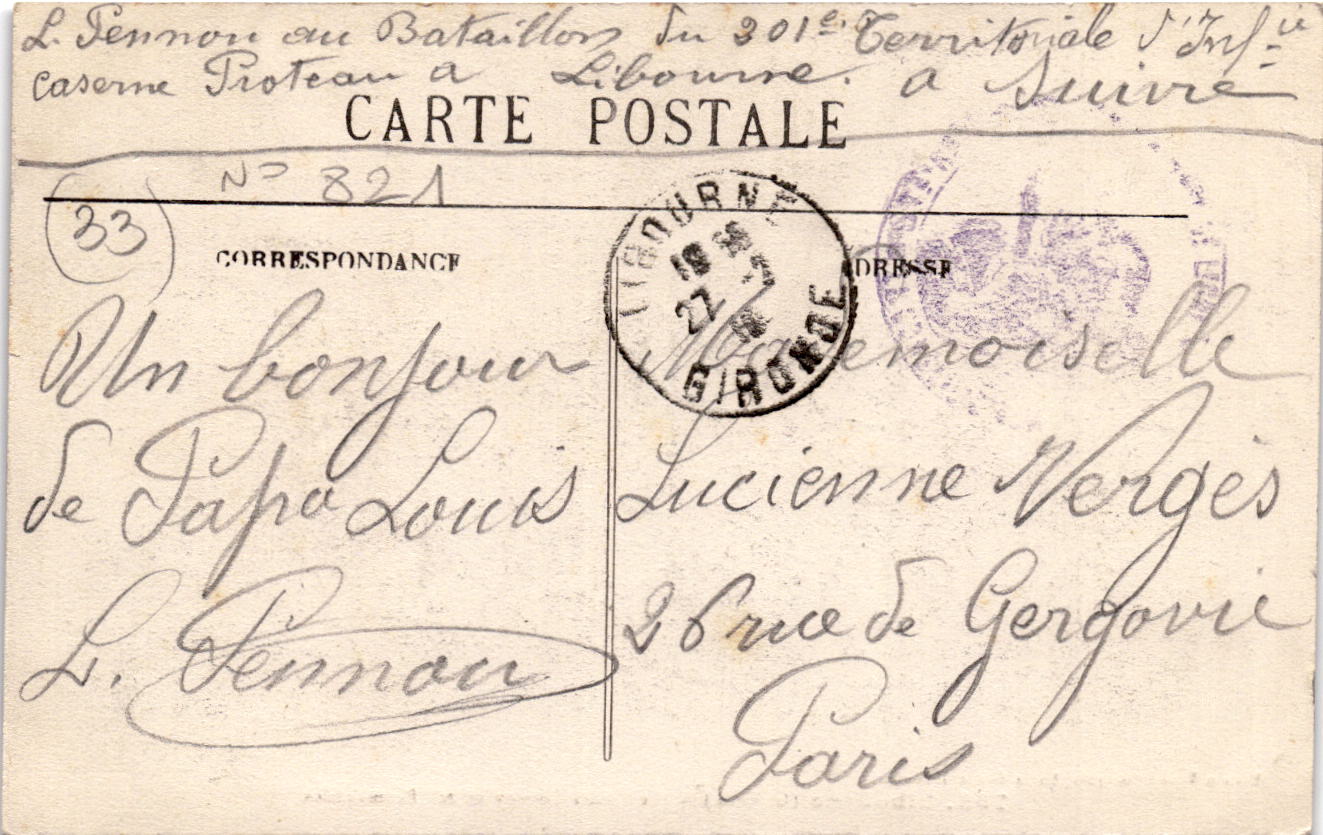 L. Pennou au Bataillon du 201e Territoriale d'Infie
Caserne Proteau a Libourne. a Suivre
CARTE POSTALE
33
No 821
CORRESPONDANCE
DRESSE
LIBOURNE
18
27
GIRONDE
Un bonjour
de Papa Louis
L. Pennou
Mademoiselle
Lucienne Vergès
26 rue de Gergovie
Paris